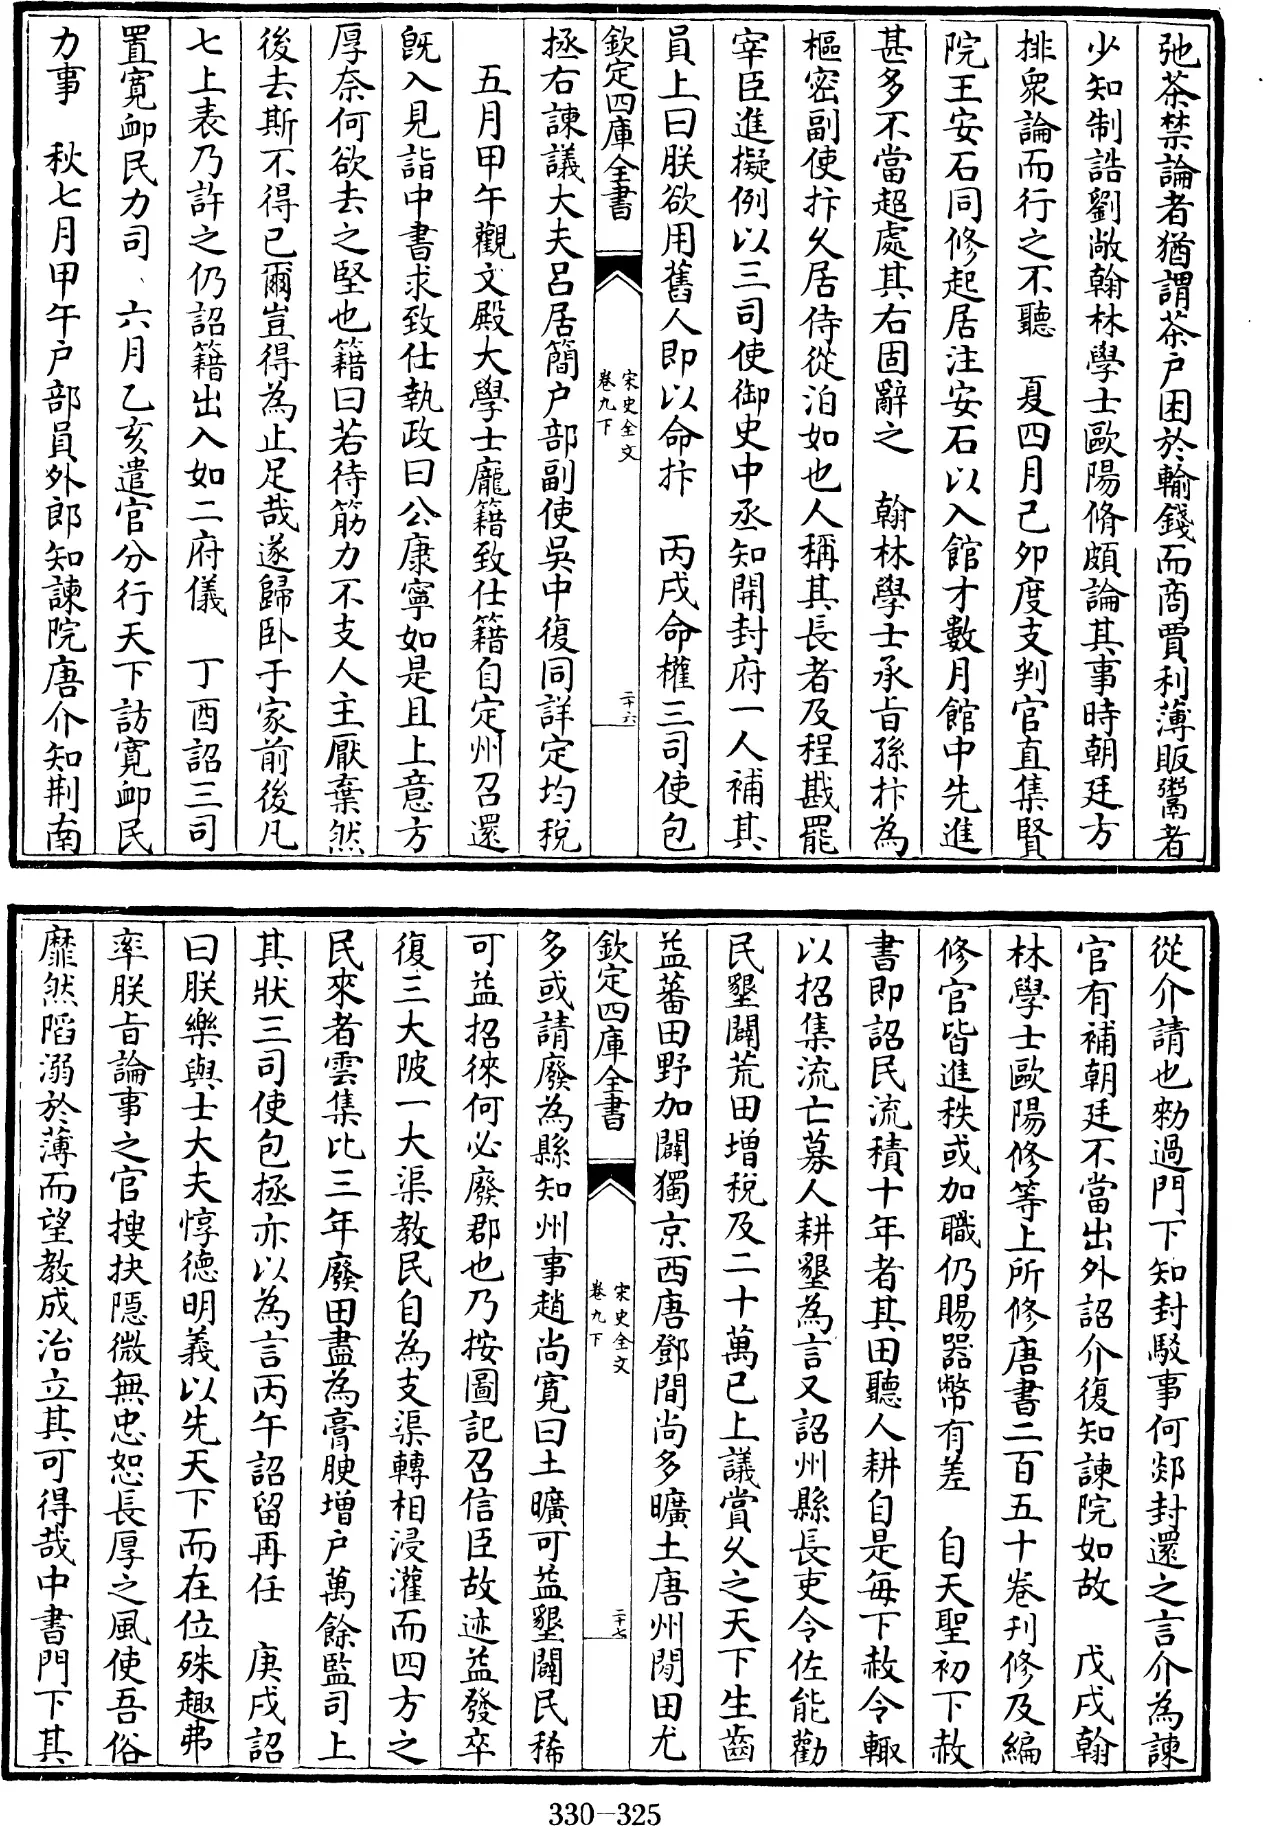 弛茶禁論者猶謂茶户困於輸錢而商賈利薄販鬻者
少知制誥劉敞翰林學士歐陽脩頗論其事時朝廷方
排衆論而行之不聽　夏四月己卯度支判官直集賢
院王安石同修起居注安石以入館才數月館中先進
甚多不當超處其右固辭之　翰林學士承旨孫抃為
樞密副使抃久居侍從泊如也人稱其長者及程戡罷
宰臣進擬例以三司使御史中丞知開封府一人補其
員上曰朕欲用舊人即以命抃　丙戌命權三司使包
欽定四庫全書
宋史全文
卷九下
二十六
拯右諫議大夫吕居簡户部副使吳中復同詳定均稅
五月甲午觀文殿大學士龐籍致仕籍自定州召還
既入見詣中書求致仕執政曰公康寧如是且上意方
厚奈何欲去之堅也籍曰若待筋力不支人主厭棄然
後去斯不得已爾豈得為止足哉遂歸卧于家前後凡
七上表乃許之仍詔籍出入如二府儀　丁酉詔三司
置寛衈民力司　六月乙亥遣官分行天下訪寛衈民
力事　秋七月甲午户部員外郎知諫院唐介知荆南
從介請也勑過門下知封駁事何郯封還之言介為諫
官有補朝廷不當出外詔介復知諫院如故　戊戌翰
林學士歐陽修等上所修唐書二百五十卷刋修及編
修官皆進秩或加職仍賜器幣有差　自天聖初下赦
書即詔民流積十年者其田聽人耕自是每下赦令輙
以招集流亡募人耕墾為言又詔州縣長吏令佐能勸
民墾闢荒田增稅及二十萬已上議賞久之天下生齒
益蕃田野加闢獨京西唐鄧間尚多曠土唐州閒田尤
欽定四庫全書
宋史全文
卷九下
二十七
多或請廢為縣知州事趙尚寛曰土曠可益墾闢民稀
可益招徠何必廢郡也乃按圖記召信臣故迹益發卒
復三大陂一大渠教民自為支渠轉相浸灌而四方之
民來者雲集比三年廢田盡為膏腴增户萬餘監司上
其狀三司使包拯亦以為言丙午詔留再任　庚戌詔
曰朕樂與士大夫惇德明義以先天下而在位殊趣弗
率朕旨論事之官搜抉隱微無忠恕長厚之風使吾俗
靡然陷溺於薄而望教成治立其可得哉中書門下其
330-325